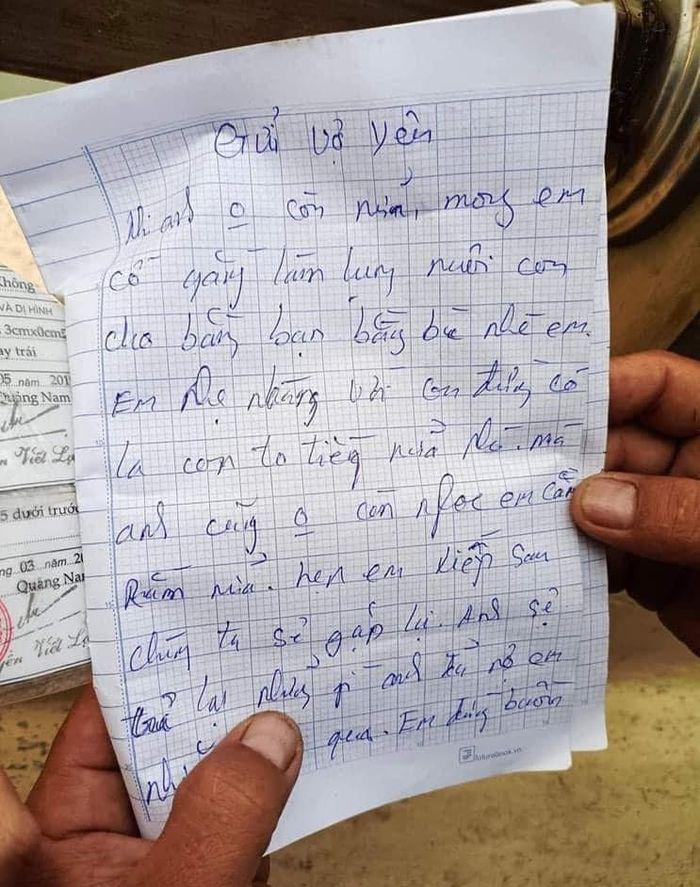 Gửi vợ yên
Khi anh o còn nữa, mong em
cố gắng làm lụng nuôi con
cho bằng bạn bằng bè nhé em.
Em nhẹ nhàng với con đừng có
la con to tiếng nữa nhé. mà
anh cũng o còn nghe em cằn
Rằn nữa. hẹn em kiếp sau
chúng ta sẽ gặp lại. Anh sẽ
trả lại những gì anh đã nợ em
qua. Em đừng buồn
Không
VÀ DỊ HÌNH
3cmx0cm5
ay trái
05 năm 201
Quảng Nam
Viết
5 dưới trước
ng 03 năm 2
Quảng Na
Viết L